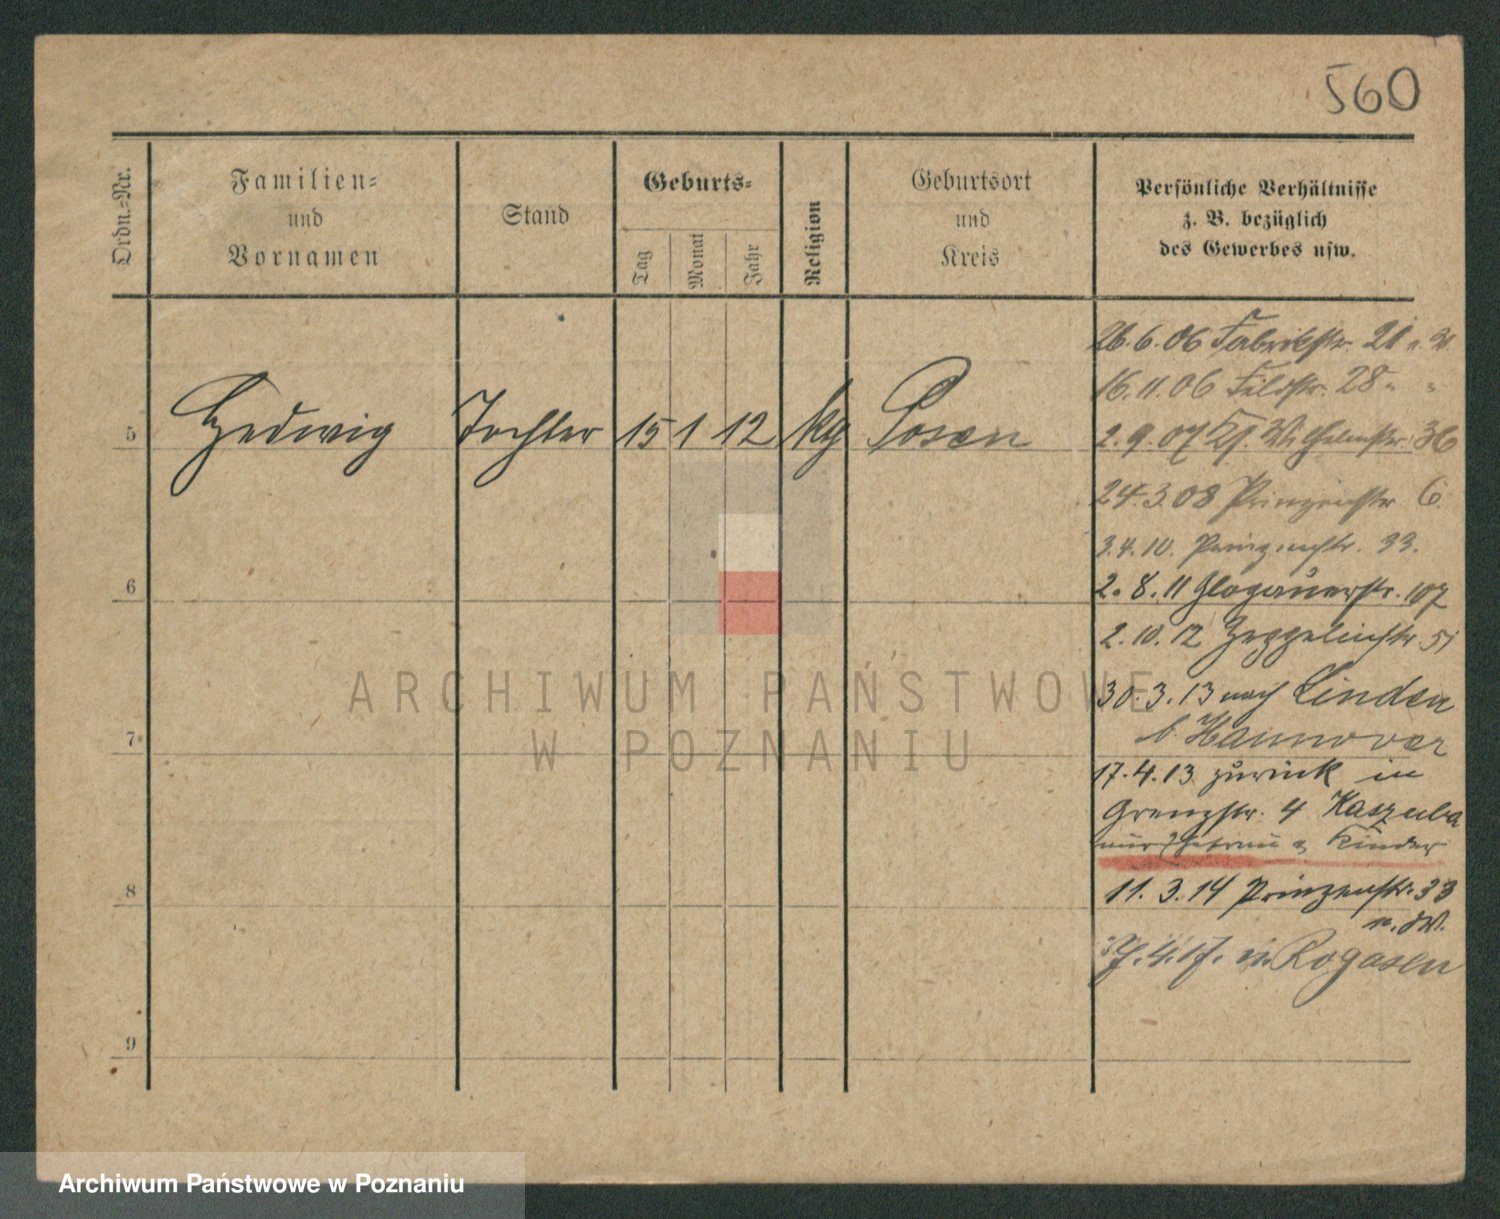 560
Ordn.-Nr.
Familien-
und
Vornamen
Stand
Geburts-
Tag
Monat
Jahr
Religion
Geburtsort
und
Kreis
Persönliche Verhältnisse
z. B. bezüglich
des Gewerbes usw.
5 Hedwig Tochter 15 1 12 kg Posen
6
7
8
9
26.6.06 Fabrikstr. 21
16.11.06 Feldstr. 28 " "
2.9.07 Kl. Wilhelmstr. 36
24.3.08 Prinzenstr. 6.
3.4.10. Prinzenstr. 33.
2.8.11 Glogauerstr. 107
2.10.12 Zeppelinstr. 51
30.3.13 nach Linden
b Hannover
17.4.13 zurück in
Grenzstr. 4 Kaszuba
nur Ehefrau u Kinder
11.3.14 Prinzenstr. 33
Rogasen
ARCHIWUM PAŃSTWOWE
W POZNANIU
Archiwum Państwowe w Poznaniu